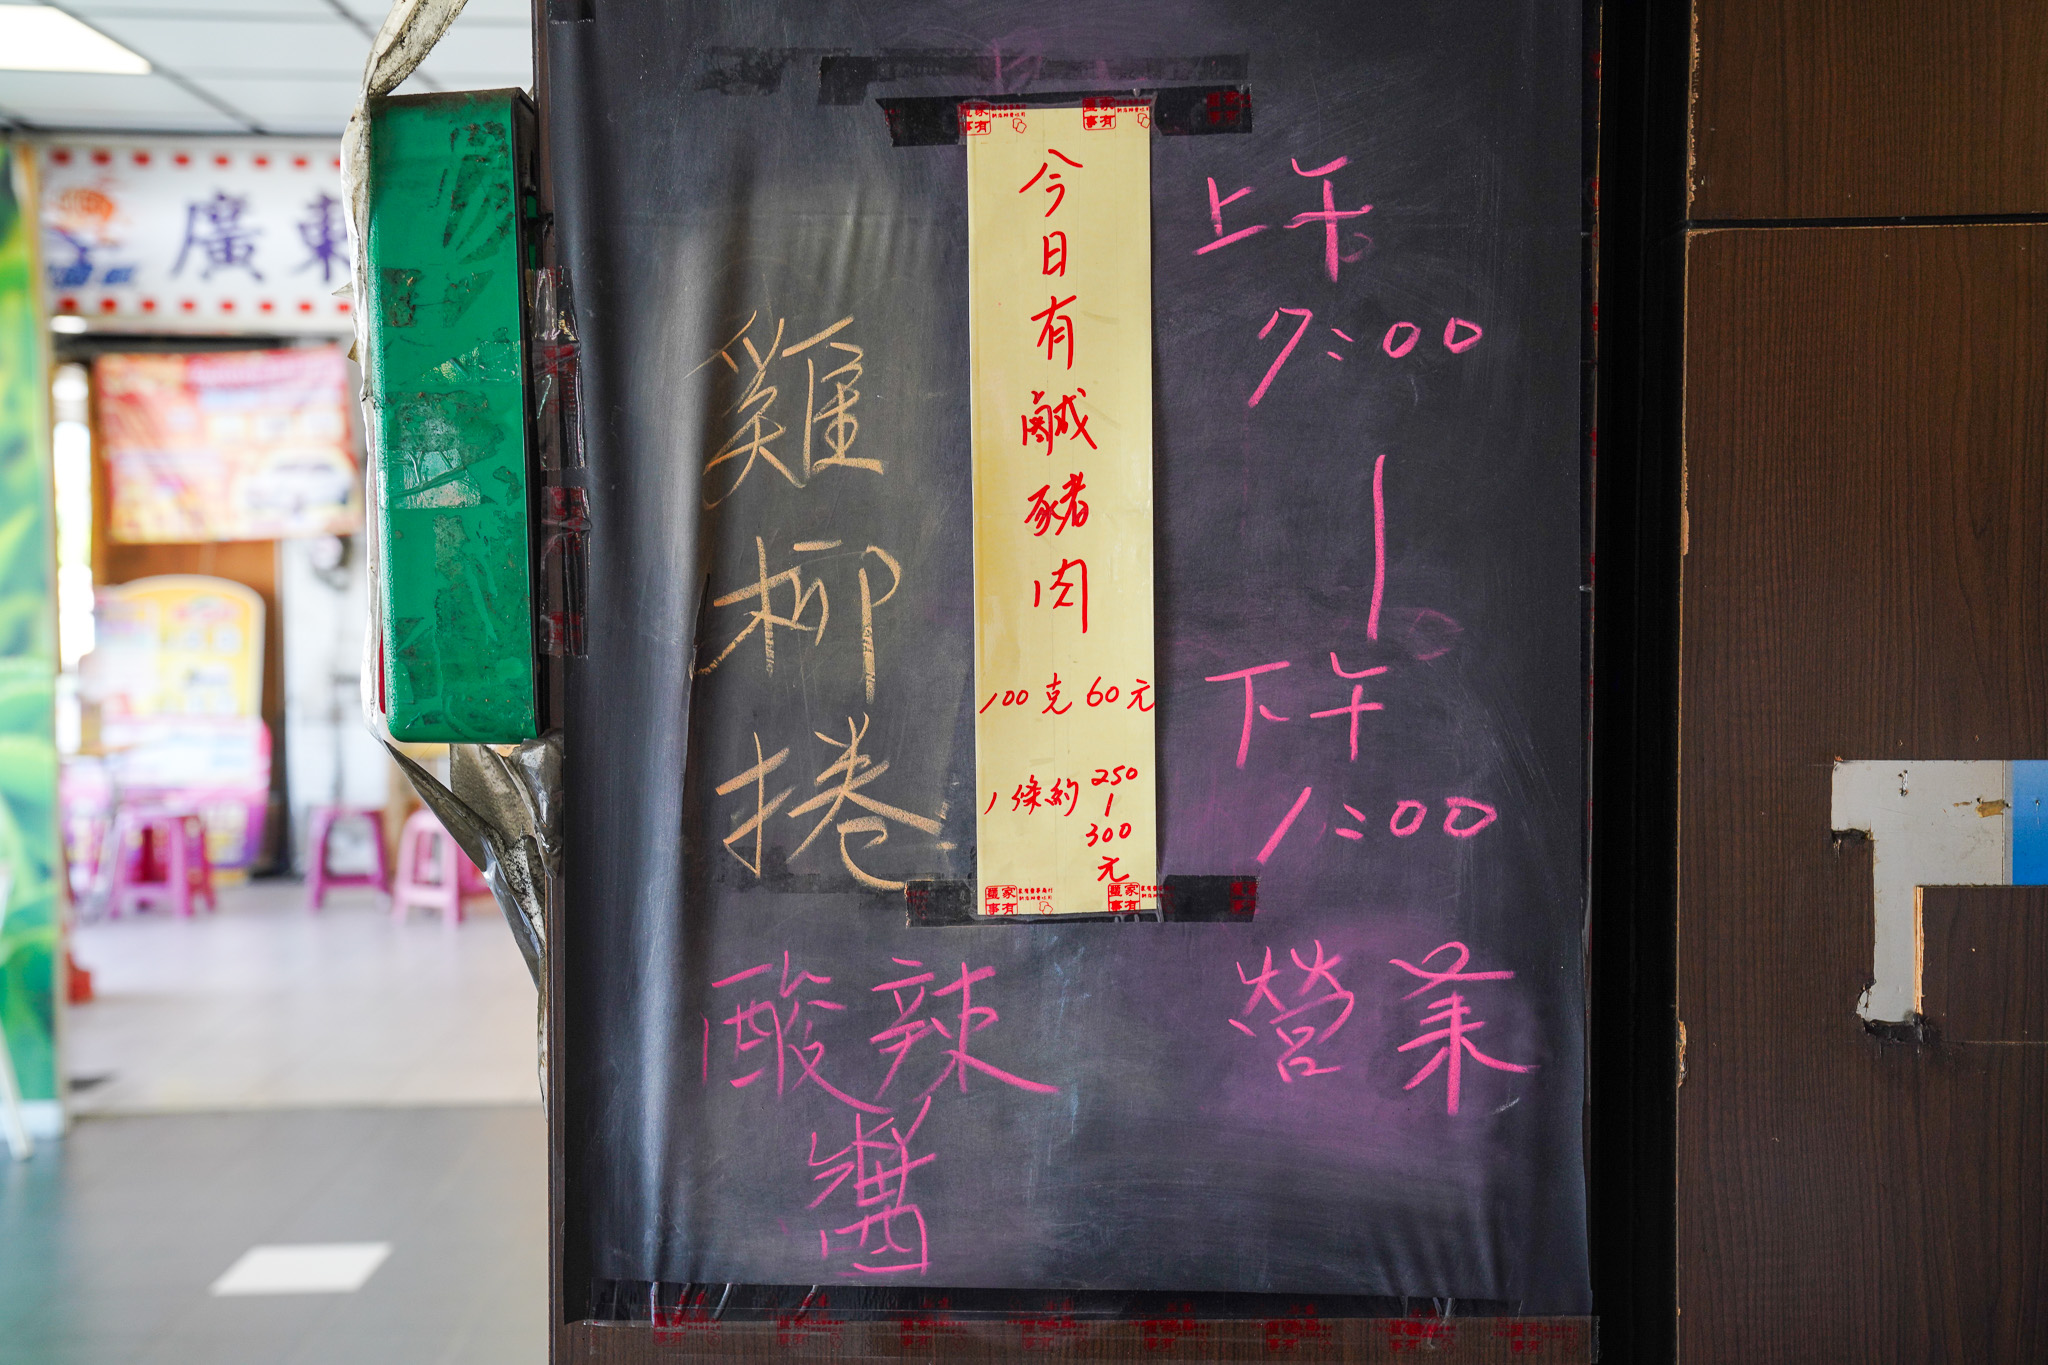 上午
7:00
|
下午
1:00
營業
今日有鹹豬肉
100克60元
1條約250
|
300
元
雞柳捲
酸辣
醬
廣東